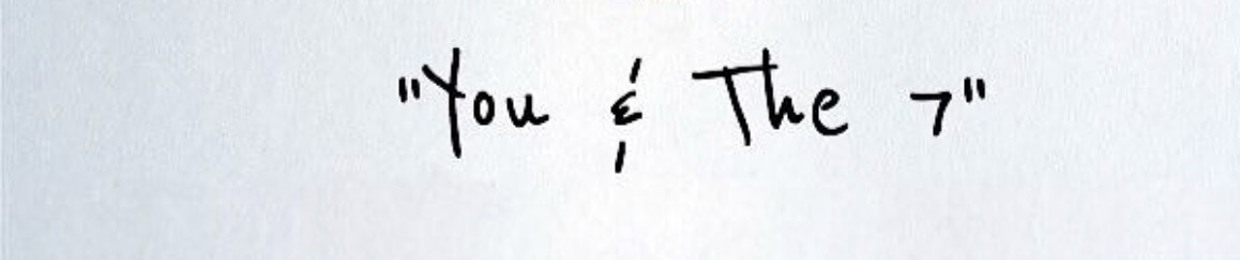 "You & The 7"